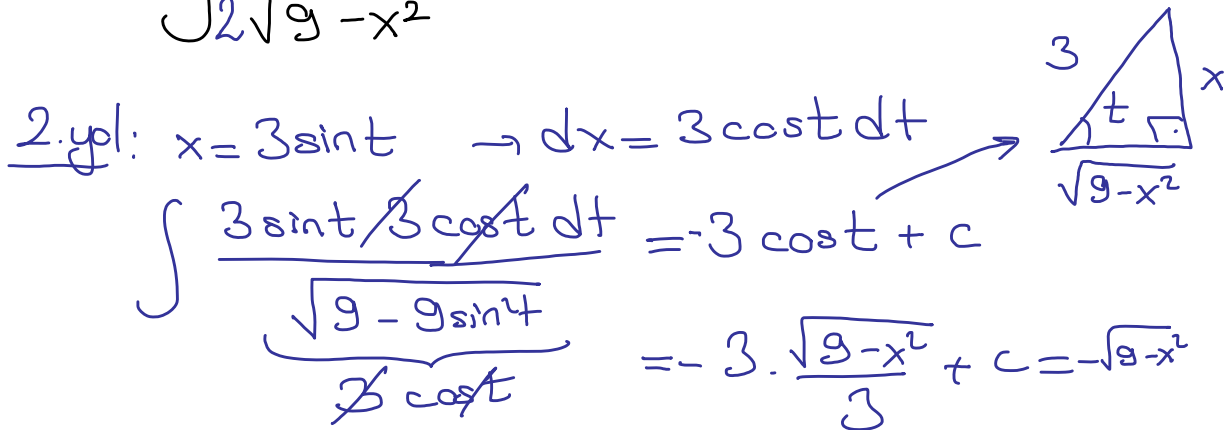 ∫2√9-x²
2.yol: x=3sint → dx=3costdt
3
x
t
√9-x²
∫ 3sint 3cost dt / √9-9sin²t = -3cost + c
3cost
= -3. √9-x² / 3 + c = -√9-x²